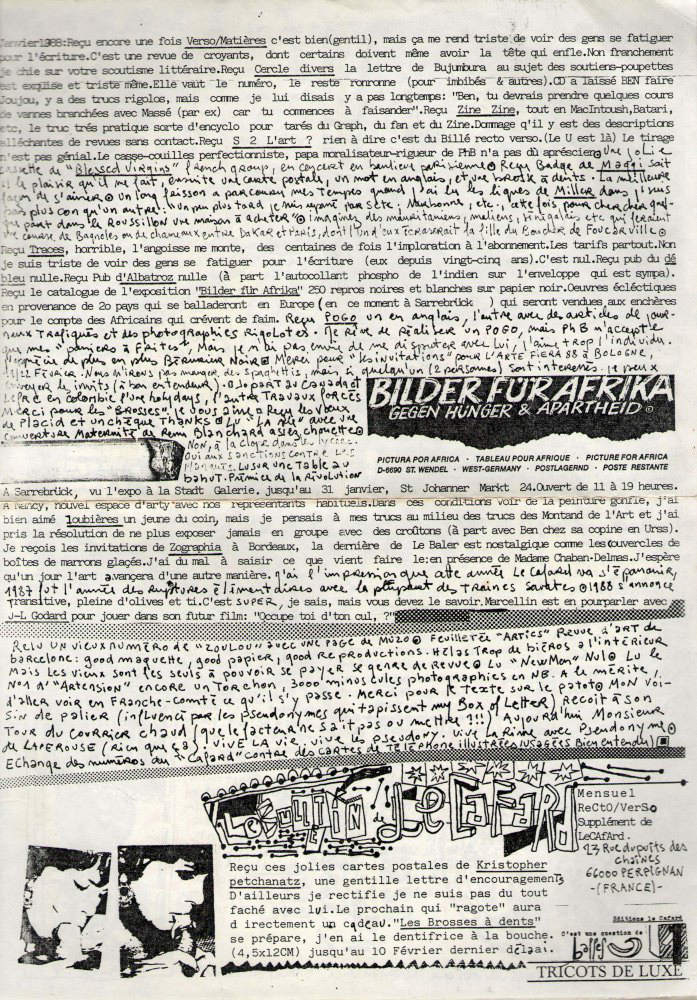 Janvier1988:Reçu encore une fois Verso/Matières c'est bien(gentil), mais ça me rend triste de voir des gens se fatiguer
pour l'écriture.C'est une revue de croyants, dont certains doivent même avoir la tête qui enfle.Non franchement
je chie sur votre scoutisme littéraire.Reçu Cercle divers la lettre de Bujumbura au sujet des soutiens-poupettes
est exquise et triste même.Elle vaut le numéro, le reste ronronne (pour imbibés & autres).CD a laissé BEN faire
Joujou, y a des trucs rigolos, mais comme je lui disais y a pas longtemps: "Ben, tu devrais prendre quelques cours
de vannes branchées avec Massé.(par ex) car tu commences à faisander".Reçu Zine Zine, tout en MacIntoush,Batari,
etc, le truc trés pratique sorte d'encyclo pour tarés du Graph, du fan et du Zine.Dommage qu'il y est des descriptions
alléchantes de revues sans contact.Reçu S 2 L'art ? rien à dire c'est du Billé recto verso.(Le U est là) Le tirage
n'est pas génial.Le casse-couilles perfectionniste, papa moralisateur-rigueur de PhB n'a pas dû apréscier une jolie
cassette de "Blessed Virgins" french group, en concert en banlieue parisienne Reçu Badge de Maggi sait
le plaisir qu'il me fait, ensuite une carte postale, un mot en anglais, et une brosse à dents. La meilleure
façon de s'aimer un long frisson a parcouru mes tempes quand j'ai lu les lignes de Miller dans j'suis
pas plus con qu'un autre un peu plus tard je m'en allant par Sète, Narbonne, etc., cette fois pour chercher quel-
que part dans le Roussillon une maison à acheter" imaginez des mauritaniens, maliens, sénégalais etc qui feraient
une course de Bagnoles ou de chameaux entre Dakar et Paris, dont l'un d'eux écraserait la fille du Boucher de Foucarville
Reçu Traces, horrible, l'angoisse me monte, des centaines de fois l'imploration à l'abonnement.Les tarifs partout.Non
je suis triste de voir des gens se fatiguer pour l'écriture (eux depuis vingt-cinq ans).C'est nul.Reçu pub du dé
bleu nulle.Reçu Pub d'Albatroz nulle (à part l'autocollant phospho de l'indien sur l'enveloppe qui est sympa).
Reçu le catalogue de l'exposition "Bilder für Afrika" 250 repros noires et blanches sur papier noir.Oeuvres écléctiques
en provenance de 20 pays qui se balladeront en Europe (en ce moment à Sarrebrück ) qui seront vendues aux enchères
pour le compte des Africains qui crévent de faim. Reçu POGO un en anglais, l'autre avec des articles de jour-
neaux trafiqués et des photographies Rigolotes. Je rêve de réaliser un POGO, mais PhB n'accepte
que mes "paniers à Frites". Mais je n'ai pas envie de me disputer avec lui, j'aime trop l'individu.
de plus en plus Noire Merci pour "les invitations" pour L'ARTE FIERA 88 à BOLOGNE,
Février. Nous n'irons pas manger des spaghettis, mais si quelqu'un (2 personnes) sont interessés. Je peux
envoyer les invits (à bon entendeur). part au Canada et
LEPRE en colombie l'une holydays, l'autre Travaux Forcés
Merci pour les "Brosses". Je vous aime Reçu les vœux
de Placid et un chèque Thanks Lu "La avec une
couverture Maternité de Remi Blanchard assez chouette
Non, à la clope dans les lycées.
Oui aux sanctions contre les
Lu sur une Table au
bahut. Prémices de la Révolution
BILDER FÜR AFRIKA
GEGEN HUNGER & APARTHEID ©
PICTURA POR AFRICA · TABLEAU POUR AFRIQUE · PICTURE FOR AFRICA
D-6690 ST. WENDEL · WEST-GERMANY · POSTLAGERND · POSTE RESTANTE
A Sarrebrück, vu l'expo à la Stadt Galerie. jusqu'au 31 janvier, St Johanner Markt 24.Ouvert de 11 à 19 heures.
A Nancy, nouvel espace d'arty avec nos représentants habituels.Dans ces conditions voir de la peinture gonfle, j'ai
bien aimé loubières un jeune du coin, mais je pensais à mes trucs au milieu des trucs des Montand de l'Art et j'ai
pris la résolution de ne plus exposer jamais en groupe avec des croûtons (à part avec Ben chez sa copine en Urss).
Je reçois les invitations de Zographia à Bordeaux, la dernière de Le Baler est nostalgique comme les couvercles de
boîtes de marrons glaçés.J'ai du mal à saisir ce que vient faire le:en présence de Madame Chaban-Delmas.J'espère
qu'un jour l'art avancera d'une autre manière. J'ai l'impression que cette année Le Cafard va s'épanouir,
1987 fut l'année des Ruptures élémentaires avec la plupart des traines savates 1988 s'annonce
Transitive, pleine d'olives et ti.C'est SUPER, je sais, mais vous devez le savoir.Marcellin est en pourparler avec
J-L Godard pour jouer dans son futur film: "Occupe toi d'ton cul, ?"
Relu un vieux numéro de "Zoulou" avec une page de Muzo Feuilletée "Artics" Revue d'art de
barcelone: good maquette, good papier, good reproductions. Hélas Trop de biéros à l'intérieur
Mais les vieux sont les seuls à pouvoir se payer ce genre de revue Lu "NewMen" Nul Lu le
Non d'"Artension" encore un Torchon, 3000 minuscules photographies en NB. A le mérite,
d'aller voir en Franche-Comté ce qu'il s'y passe. Merci pour le Texte sur le patot Mon voi-
sin de palier (influencé par les pseudonymes qui tapissent my Box of Letter) Reçoit à son
Tour du courrier chaud (que le facteur ne sait pas où mettre !!!) Aujourd'hui Monsieur
de LAPEROUSE (rien que ça). Vive la vie, vive les pseudony. vive la Rime avec pseudonyme
Echange des numéros du "Cafard" contre des cartes de Téléphone illustrées (usagées bien entendu)
Le BULLETIN de Le CAFARD
Mensuel
ReCtO/VerSo
Supplément de
LeCAfArd.
23 Rue du puits des
chaînes
66000 PERPIGNAN
-(FRANCE)-
Reçu ces jolies cartes postales de Kristopher
petchanatz, une gentille lettre d'encouragements
D'ailleurs je rectifie je ne suis pas du tout
faché avec lui.Le prochain qui "ragote" aura
d irectement un cadeau."Les Brosses à dents"
se prépare, j'en ai le dentifrice à la bouche.
(4,5x12CM) jusqu'au 10 Février dernier délai.
Editions le Cafard
C'est une question de
balles
TRICOTS DE LUXE